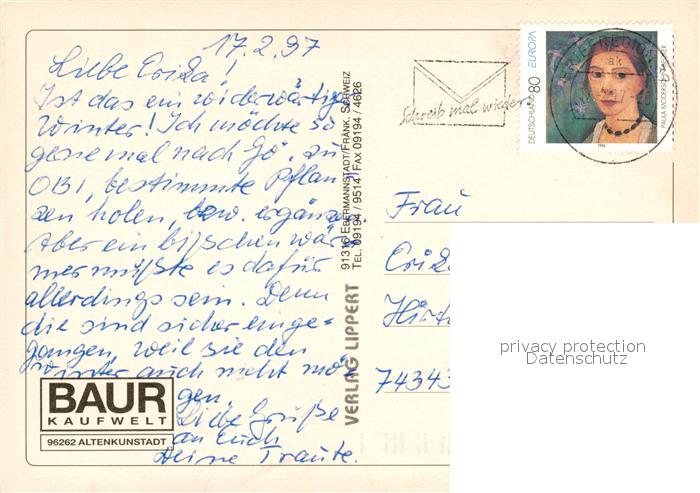 17.2.97
Liebe Erika!
Ist das ein widerwärtiger
Winter! Ich möchte so
gerne mal nach Gö. zu
OBI, bestimmte Pflan-
zen holen, bzw. ergänzen.
Aber ein bißchen wär-
mer müßte es dafür
allerdings sein. Denn
die sind sicher einge=
gangen, weil sie den
Winter auch nicht mö-
gen.
Liebe Grüße
an Euch
Deine Traute.
BAUR
KAUFWELT
96262 ALTENKUNSTADT
VERLAG LIPPERT
91316 EBERMANNSTADT/FRÄNK. SCHWEIZ
TEL. 09194 / 9514 FAX 09194 / 4626
Schreib mal wieder
DEUTSCHLAND 80 EUROPA
PAULA MODERSOHN-BECKER
1996
Frau
74343
privacy protection
Datenschutz